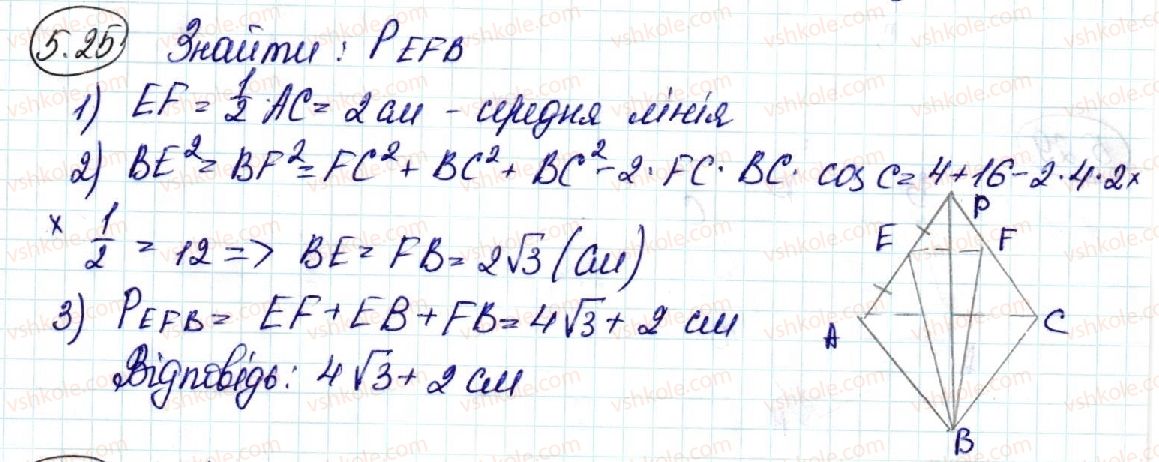 5.25 Знайти: P EFB
1) EF = 1/2 AC = 2 см - середня лінія
2) BE² = BF² = FC² + BC² + BC² - 2 · FC · BC · cos C = 4 + 16 - 2 · 4 · 2 ×
× 1/2 = 12 => BE = FB = 2√3 (см)
3) P EFB = EF + EB + FB = 4√3 + 2 см
Відповідь: 4√3 + 2 см
P
E F
A C
B